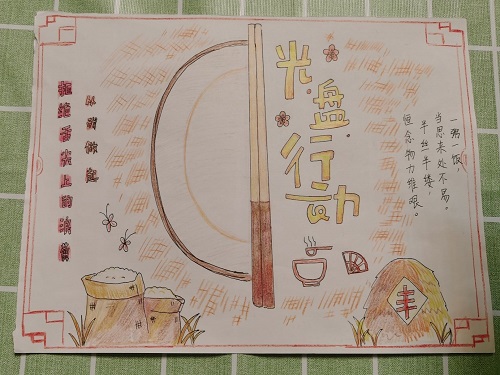 光盘行动
一粥一饭，
当思来处不易。
半丝半缕，
恒念物力维艰。
拒绝舌尖上的浪费
从我做起
丰